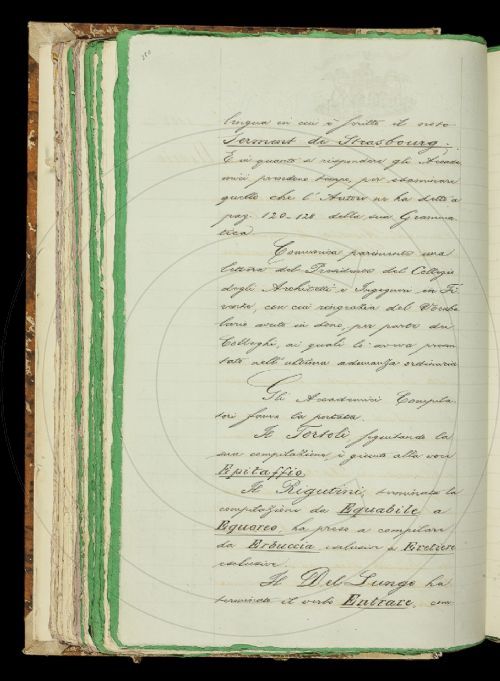 lingua in cui è scritto il noto
Serment de Strasbourg;
E in quanto a rispondere gli Accade
mici prendono tempo, per esaminare
quello che l'Autore ne ha detto a
pag. 120-128 della sua Gramma
tica.
Comunica parimente una
lettera del Presidente del Collegio
degli Architetti e Ingegneri in Fi
renze, con cui ringrazia del Vocabo
lario avuto in dono, per parte dei
Colleghi, ai quali lo aveva presen
tato nell'ultima adunanza ordinaria
Gli Accademici Compila
tori fanno la portata.
Il Tortoli seguitando la
sua compilazione è giunto alla voce
Epitaffio.
Il Rigutini, terminata la
compilazione da Equabile a
Equoreo, ha preso a compilare
da Erbuccia inclusive a
esclusive.
Il Del Lungo ha
terminato il verbo Entrare, com